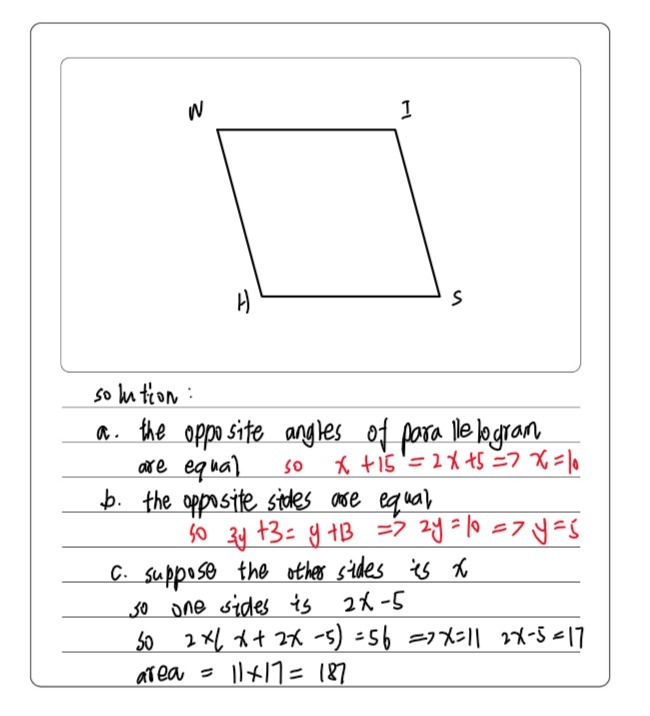 W I
H S
solution :
a. the opposite angles of parallelogram
are equal so x + 15 = 2x + 5 => x = 10
b. the opposite sides are equal
so 3y + 3 = y + 13 => 2y = 10 => y = 5
c. suppose the other sides is x
so one sides is 2x - 5
so 2 × ( x + 2x - 5) = 56 => x = 11 2x - 5 = 17
area = 11 × 17 = 187